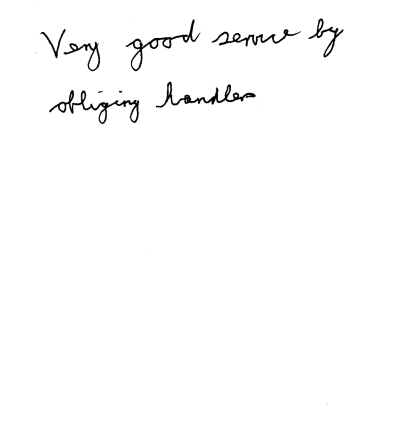 Very good service by
obliging handlers